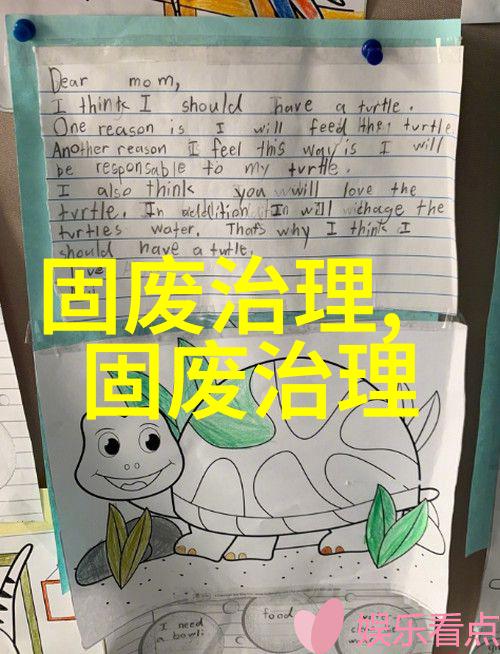 Dear mom,
I think I should have a turtle.
One reason is I will feed the turtle
Another reason I feel this way is I will
be responsable to my turtle.
I also think you will love the
turtle. In addition I will chage the
turtles water. Thats why I think I
should have a turtle.
固废治理,
固废治理
I need
a bowl
food
娱乐看点